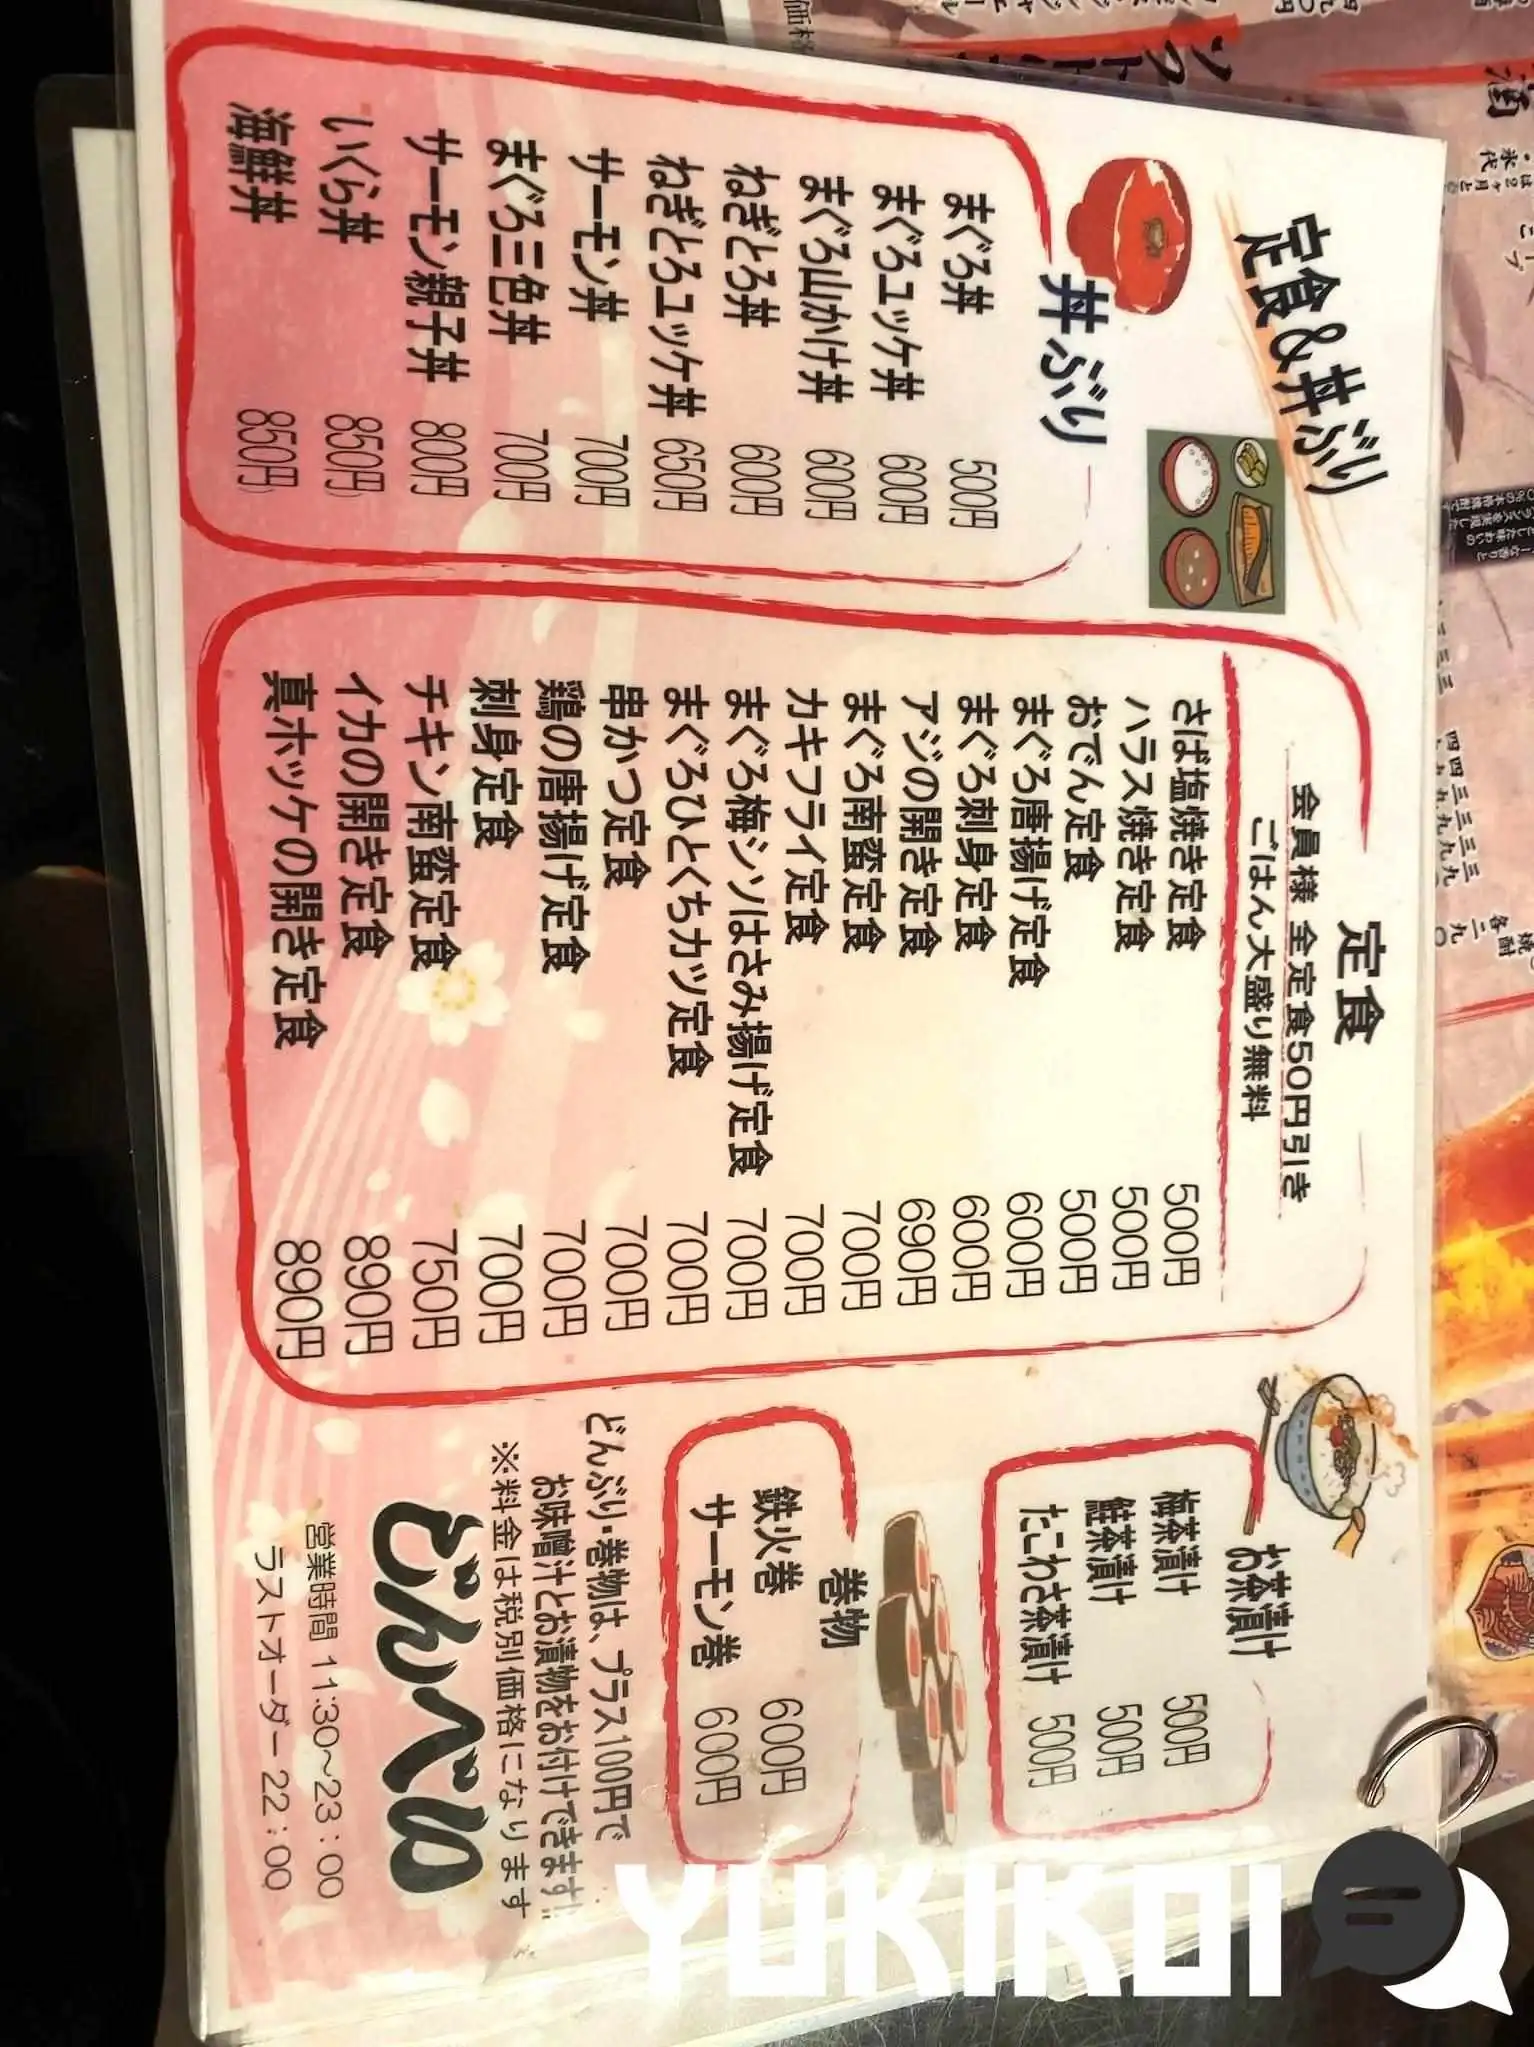 定食&丼ぶり
丼ぶり
まぐろ丼 500円
まぐろユッケ丼 600円
まぐろ山かけ丼 600円
ねぎとろ丼 600円
ねぎとろユッケ丼 650円
サーモン丼 700円
まぐろ三色丼 700円
サーモン親子丼 800円
いくら丼 850円
海鮮丼 850円
定食
会員様 全定食50円引き
ごはん大盛り無料
さば塩焼き定食 500円
ハラス焼き定食 500円
おでん定食 500円
まぐろ唐揚げ定食 600円
まぐろ刺身定食 600円
アジの開き定食 690円
まぐろ南蛮定食 700円
カキフライ定食 700円
まぐろ梅シソはさみ揚げ定食 700円
まぐろひとくちカツ定食 700円
串かつ定食 700円
鶏の唐揚げ定食 700円
刺身定食 700円
チキン南蛮定食 750円
イカの開き定食 890円
真ホッケの開き定食 890円
お茶漬け
梅茶漬け 500円
鮭茶漬け 500円
たこわさ茶漬け 500円
巻物
鉄火巻 600円
サーモン巻 600円
どんぶり・巻物は、プラス100円で
お味噌汁とお漬物をお付けできます!!
※料金は税別価格になります
どんべロ
営業時間 11:30～23:00
ラストオーダー 22:00
YUKIKOI